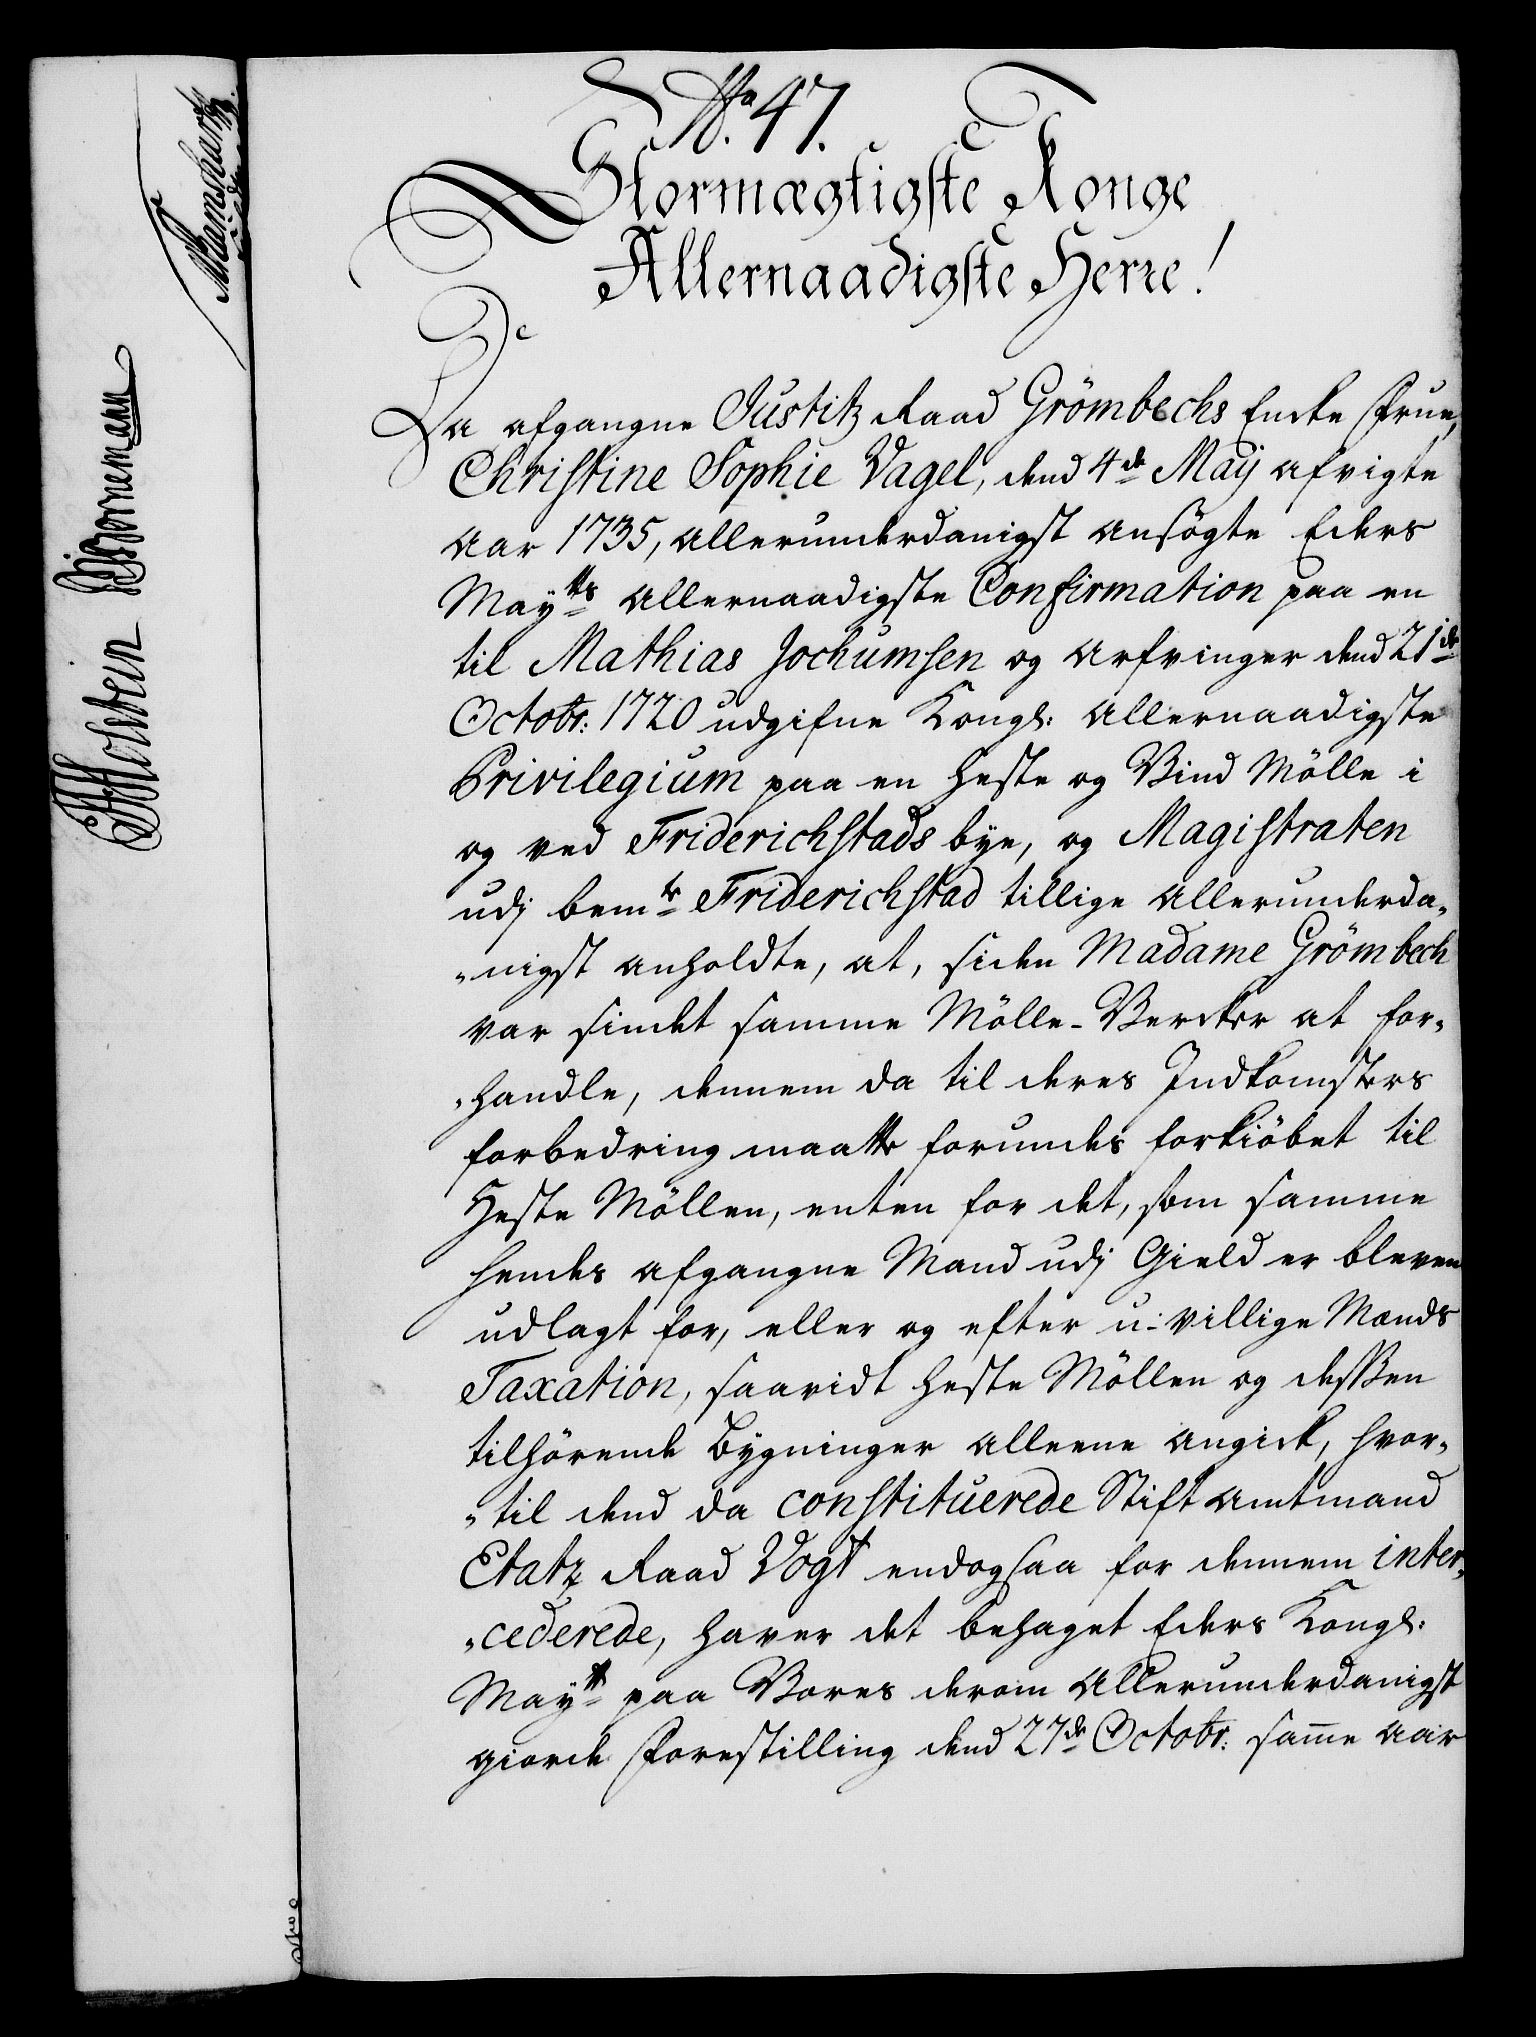 No. 47.
Stormægtigste Konge
Allernaadigste Herre!
Da afgangne Justitz Raad Grömbechs Encke Frue,
Christine Sophie Vagel, dend 4de Maÿ afvigte
Aar 1735, allerunderdanigst ansögte Eders
Mayts allernaadigste Confirmation paa en
til Mathias Jochumsen og Arfvinger dend 21de
Octobr: 1720 udgifne Kongl: allernaadigste
Privilegium paa en Heste og Vind Mölle i
og ved Friderichstads bye, og Magistraten
udj bemte Friderichstad tillige allerunderda-
-nigst anholdte, at, siden Madame Grömbech
var sindet samme Mölle-Vercker at for-
-handle, dennem da til deres Indkomsters
forbedring maatte forundes forkiöbet til
Heste Möllen, enten for det, som samme
hendes afgangne Mand udj Gield er bleven
udlagt for, eller og efter u-villige Mænds
Taxation, saavidt Heste Möllen og desßen
tilhörende Bygninger alleene angick, hvor-
-til dend da constituerede Stift Amtmand
Etatz Raad Vogt endogsaa for dennem inter-
-cederede, haver det behaget Eders Kongl:
Mayt paa Vores derom allerunderdanigst
giorde Forestilling dend 27de Octobr: samme Aar
JBornemann
Holstein